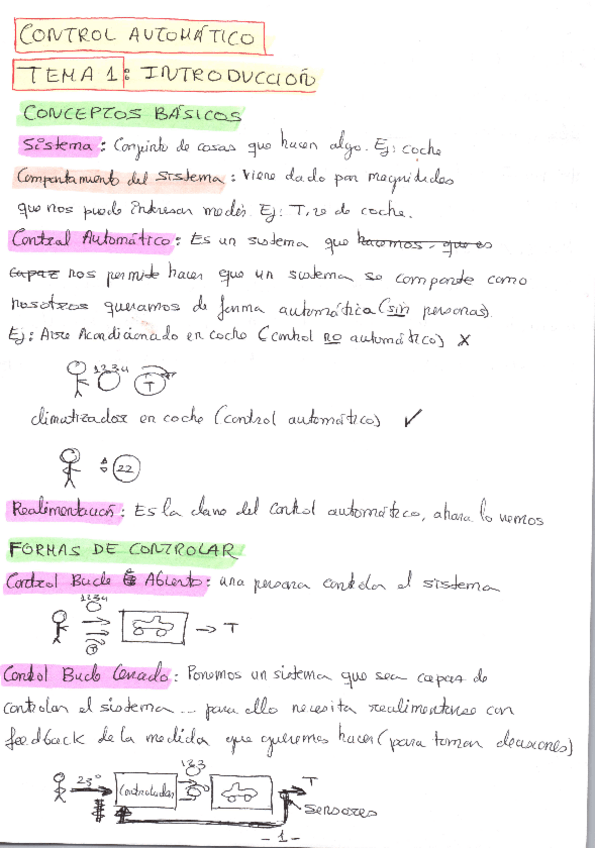 CONTROL AUTOMÁTICO
TEMA 1: INTRODUCCIÓN
CONCEPTOS BÁSICOS
Sistema: Conjunto de cosas que hacen algo. Ej: coche
Comportamiento del sistema: viene dado por magnitudes
que nos puede interesar medir. Ej: T, v de coche.
Control Automático: Es un sistema que hacemos, que es
capaz nos permite hacer que un sistema se comporte como
nosotros queramos de forma automática (sin personas).
Ej: Aire Acondicionado en coche (control no automático) X
1 2 3 4 T
climatizador en coche (control automático) ✓
22
Realimentación: Es la clave del control automático, ahora lo vemos
FORMAS DE CONTROLAR
Control Bucle Abierto: una persona controla el sistema
1 2 3 4
T
→ T
Control Bucle Cerrado: Ponemos un sistema que sea capaz de
controlar el sistema ... para ello necesita realimentarse con
feedback de la medida que queremos hacer (para tomar decisiones)
1 2 3
23° Controlador T
sensores
- 1 -